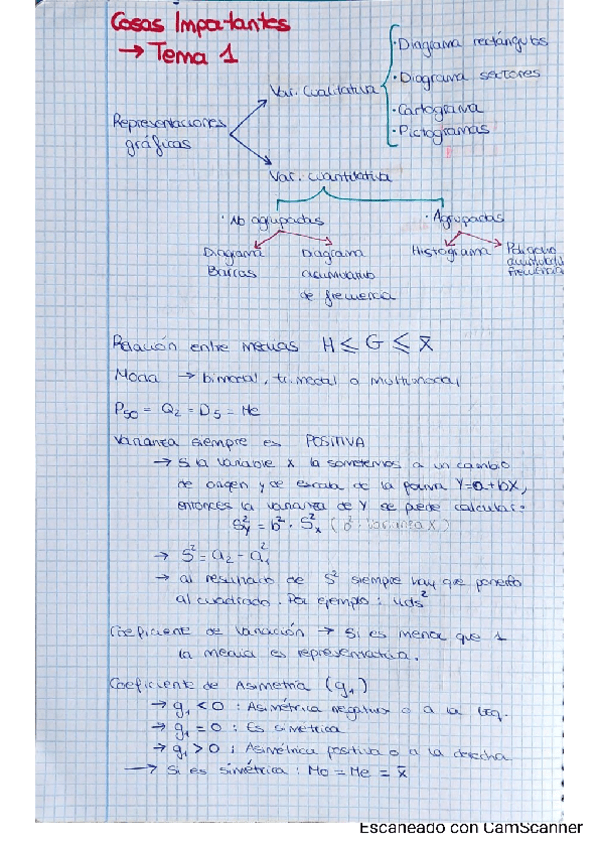 Cosas Importantes
→ Tema 1
Representaciones gráficas
Var. Cualitativa
· Diagrama rectángulos
· Diagrama sectores
· Cartograma
· Pictogramas
Var. cuantitativa
· No agrupadas
· Agrupadas
Diagrama Barras
Diagrama acumulativo de frecuencia
Histograma
Polígono acumulativo frecuencia
Relación entre medias H ≤ G ≤ x̄
Moda → bimodal, trimodal o multimodal
P50 = Q2 = D5 = Me
Varianza siempre es POSITIVA
→ Si la variable X la sometemos a un cambio
de origen y de escala de la forma Y=a+bX,
entonces la varianza de Y se puede calcular:
S²y = b² · S²x (b² · varianza X)
→ S² = a2 - a1²
→ al resultado de S² siempre hay que ponerlo
al cuadrado. Por ejemplo: uds²
Coeficiente de Variación → Si es menor que 1
la media es representativa.
Coeficiente de Asimetría (g1)
→ g1 < 0 : Asimétrica negativa o a la izq.
→ g1 = 0 : Es simétrica
→ g1 > 0 : Asimétrica positiva o a la derecha
→ Si es simétrica : Mo = Me = x̄
Escaneado con CamScanner